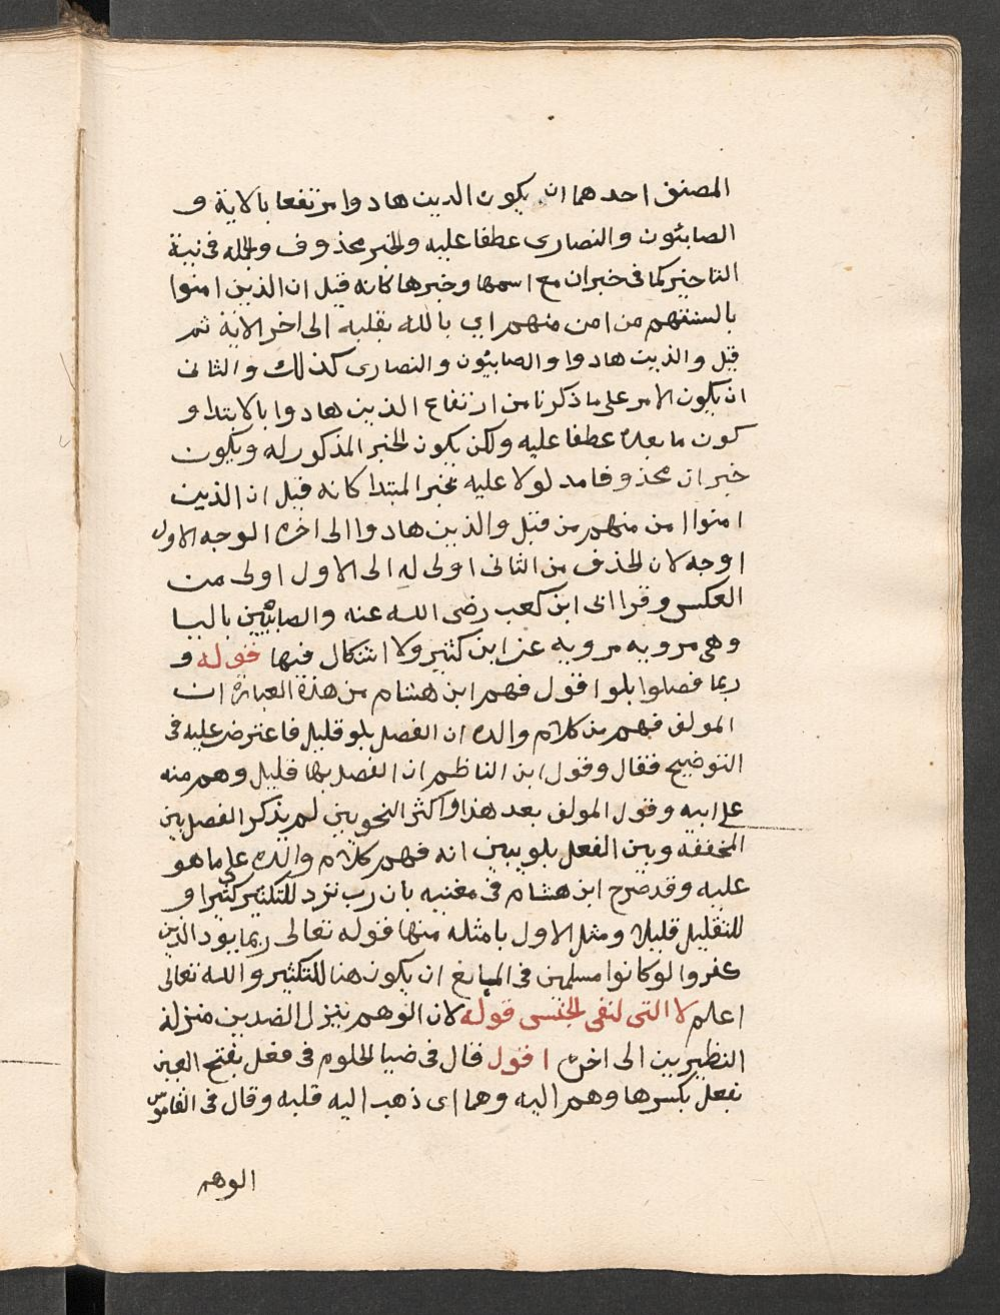 المصنف احدهما ان يكون الذين هادوا مرتفعا بالابتدا و
الصابئون والنصارى عطفا عليه والخبر محذوف والجملة في نية
التاخير كما في خبر ان مع اسمها وخبرها كانه قيل ان الذين امنوا
بالسنتهم من امن منهم اي بالله بقلبه الى اخر الاية ثم
قيل والذين هادوا والصابيون والنصارى كذلك والثاني
ان يكون الامر على ما ذكرنا من ارتفاع الذين هادوا بالابتدا و
كون ما بعده عطفا عليه ولكن يكون الخبر المذكور له ويكون
خبر ان محذوفا مدلولا عليه بخبر المبتدا كانه قيل ان الذين
امنوا من منهم من قبل والذين هادوا الى اخره الوجه الاول
اوجه لان الحذف من الثاني اولى له الى الاول اولى من
العكس وقرا ابى ابن كعب رضى الله عنه والصابيين باليا
وهي مرويه مرويه عن ابن كثير ولا اشكال فيها قوله و
ربما فصلوا بلو اقول فهم ابن هشام من هذة العبارة ان
المولف فهم من كلام والده ان الفصل بلو قليل فاعترض عليه في
التوضيح فقال وقول ابن الناظم ان الفصل بها قليل وهم منه
على ابيه وقول المولف بعد هذا واكثر النحويين لم يذكر الفصل بين
المخففه وبين الفعل بلو يبين انه فهم كلام والده على ما هو
عليه وقد صرح ابن هشام في مغنيه بان رب ترد للتكثير كثيرا و
للتقليل قليلا ومثل الاول بامثله منها قوله تعالى ربما يود الذين
كفروا لو كانوا مسلمين في المانع ان يكون هنا للتكثير والله تعالى
اعلم لا التى لنفى الجنسى قوله لان الوهم ينزل الضدين منزلة
النظيرين الى اخره اقول قال في ضيا الحلوم في فعل بفتح العين
يفعل بكسرها وهم اليه وهما اى ذهب اليه قلبه وقال في القاموس
الوهم